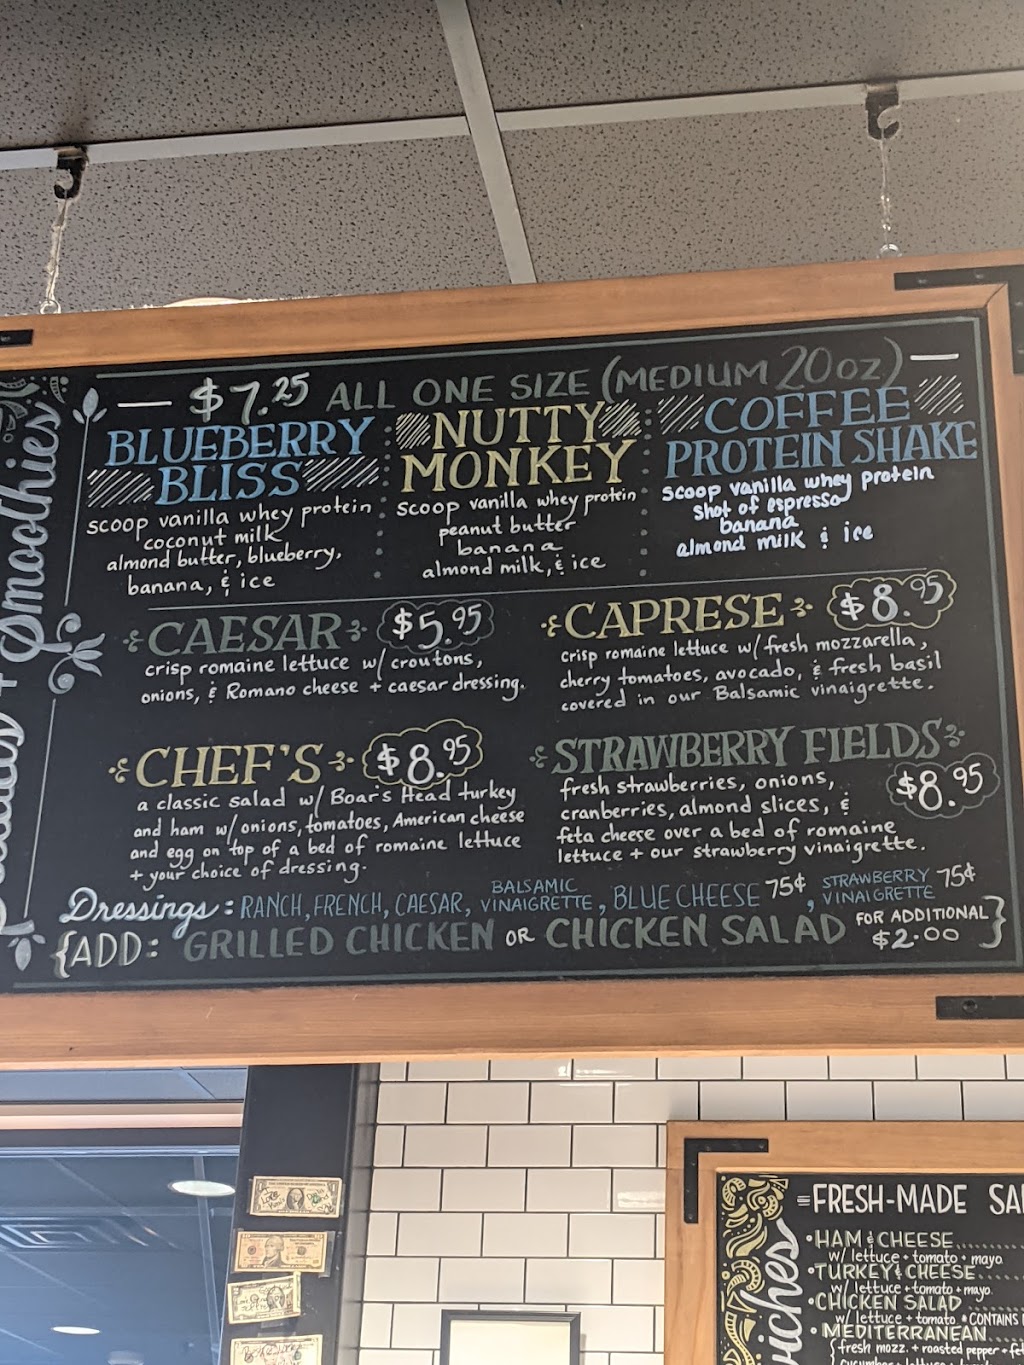 Smoothies
$7.25 ALL ONE SIZE (MEDIUM 20oz)
BLUEBERRY
BLISS
scoop vanilla whey protein
coconut milk
almond butter, blueberry,
banana, & ice
NUTTY
MONKEY
scoop vanilla whey protein
peanut butter
banana
almond milk, & ice
COFFEE
PROTEIN SHAKE
scoop vanilla whey protein
shot of espresso
banana
almond milk & ice
CAESAR $5.95
crisp romaine lettuce w/ croutons,
onions, & Romano cheese + caesar dressing.
CAPRESE $8.95
crisp romaine lettuce w/ fresh mozzarella,
cherry tomatoes, avocado, & fresh basil
covered in our Balsamic vinaigrette.
CHEF'S $8.95
a classic salad w/ Boar's Head turkey
and ham w/ onions, tomatoes, American cheese
and egg on top of a bed of romaine lettuce
+ your choice of dressing.
STRAWBERRY FIELDS
$8.95
fresh strawberries, onions,
cranberries, almond slices, &
feta cheese over a bed of romaine
lettuce + our strawberry vinaigrette.
Dressings: RANCH, FRENCH, CAESAR, BALSAMIC VINAIGRETTE, BLUE CHEESE 75¢, STRAWBERRY VINAIGRETTE 75¢
{ADD: GRILLED CHICKEN OR CHICKEN SALAD FOR ADDITIONAL $2.00}
FRESH-MADE
HAM & CHEESE
w/ lettuce + tomato + mayo
TURKEY & CHEESE
w/ lettuce + tomato + mayo
CHICKEN SALAD
w/ lettuce + tomato *CONTAINS
MEDITERRANEAN
fresh mozz. + roasted pepper +